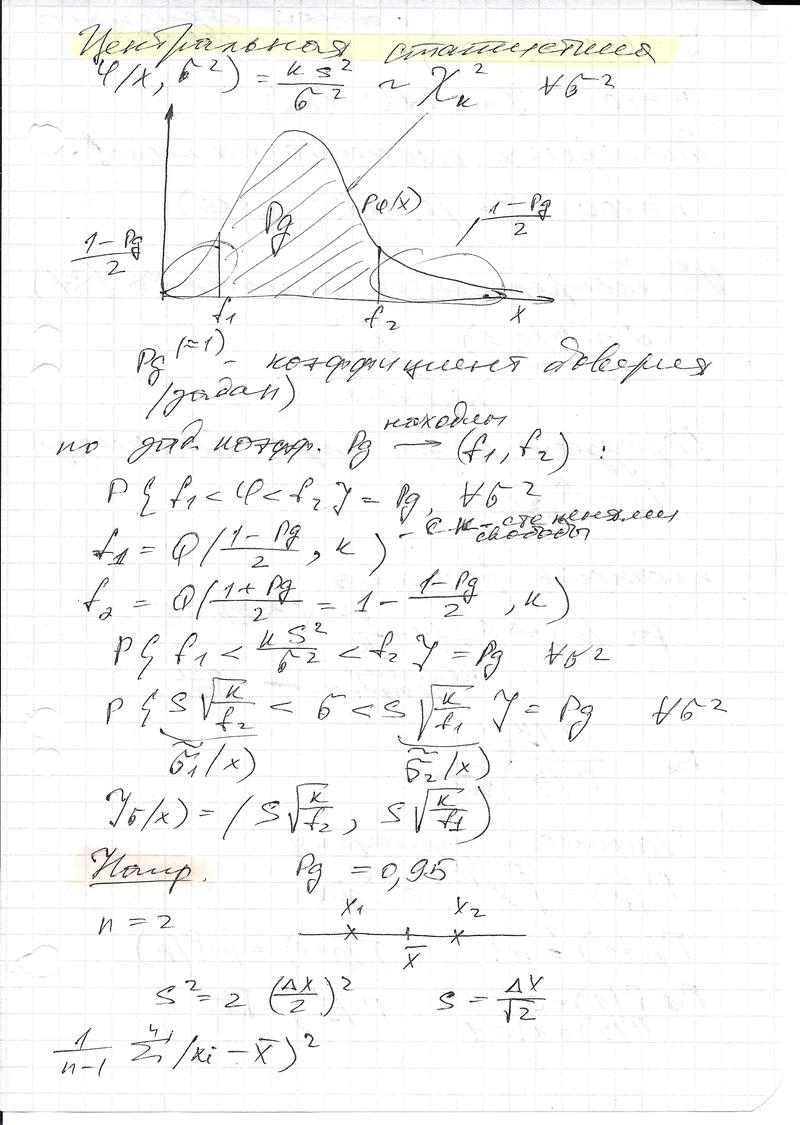 Центральная статистика
φ(x, σ²) = kS²/σ² ~ χₖ² ∀σ²
Pφ(x)
(1-Pg)/2
Pg
(1-Pg)/2
f₁
f₂
x
Pg (≈1) - коэффициент доверия
(задан)
по зад. коэфф. Pg находим → (f₁, f₂) :
P{ f₁ < φ < f₂ } = Pg, ∀σ²
f₁ = Q((1-Pg)/2, k) - с k - степенями свободы
f₂ = Q((1+Pg)/2 = 1 - (1-Pg)/2, k)
P{ f₁ < kS²/σ² < f₂ } = Pg ∀σ²
P{ S√(k/f₂) < σ < S√(k/f₁) } = Pg ∀σ²
σ̃₁(x) σ̃₂(x)
Jσ(x) = (S√(k/f₂), S√(k/f₁))
Напр. Pg = 0,95
n = 2
x₁ x₂
x̄
S² = 2 (Δx/2)² S = Δx/√2
1/(n-1) Σ(xᵢ - x̄)²